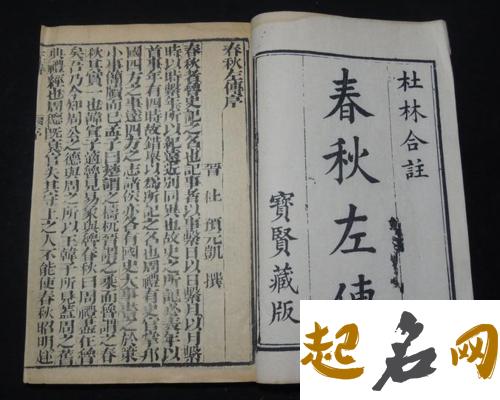 杜林合註
春秋左傳
寶賢藏版
春秋左傳序
晉 杜 預元凱 撰
春秋者魯史記之名也記事者以事繫日以日繫月以月繫
時以時繫年所以紀遠近別同異也故史之所記必表年以
首事年有四時故錯舉以為所記之名也周禮有史官掌邦
國四方之事達四方之志諸侯亦各有國史大事書之於策
小事簡牘而已孟子曰楚謂之檮杌晉謂之乘而魯謂之春
秋其實一也韓宣子適魯見易象與魯春秋曰周禮盡在魯
矣吾乃今知周公之德與周之所以王韓子所見蓋周之舊
典禮經也周德既衰官失其守上之人不能使春秋昭明赴
起名网